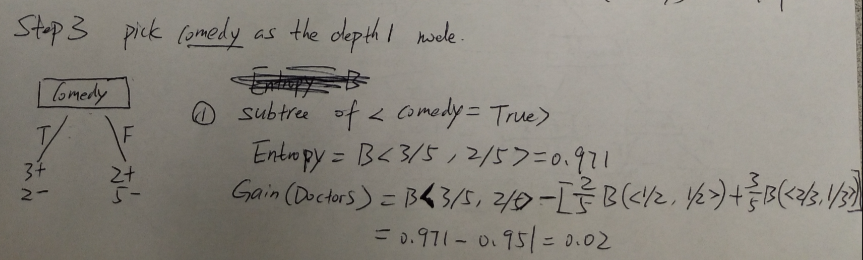 Step 3 pick Comedy as the depth 1 node.
Comedy
T F
3+ 2+
2- 5-
① subtree of < Comedy = True>
Entropy = B<3/5, 2/5> = 0.971
Gain (Doctors) = B<3/5, 2/5> - [2/5 B(<1/2, 1/2>) + 3/5 B(<2/3, 1/3>)]
= 0.971 - 0.951 = 0.02